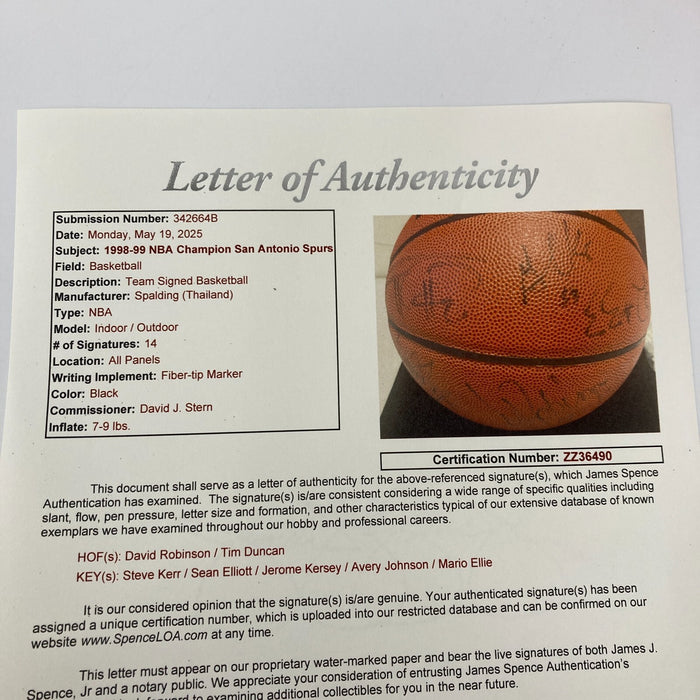 Letter of Authenticity
Submission Number: 342664B
Date: Monday, May 19, 2025
Subject: 1998-99 NBA Champion San Antonio Spurs
Field: Basketball
Description: Team Signed Basketball
Manufacturer: Spalding (Thailand)
Type: NBA
Model: Indoor / Outdoor
# of Signatures: 14
Location: All Panels
Writing Implement: Fiber-tip Marker
Color: Black
Commissioner: David J. Stern
Inflate: 7-9 lbs.
Certification Number: ZZ36490
This document shall serve as a letter of authenticity for the above-referenced signature(s), which James Spence
Authentication has examined. The signature(s) is/are consistent considering a wide range of specific qualities including
slant, flow, pen pressure, letter size and formation, and other characteristics typical of our extensive database of known
exemplars we have examined throughout our hobby and professional careers.
HOF(s): David Robinson / Tim Duncan
KEY(s): Steve Kerr / Sean Elliott / Jerome Kersey / Avery Johnson / Mario Ellie
It is our considered opinion that the signature(s) is/are genuine. Your authenticated signature(s) has been
assigned a unique certification number, which is uploaded into our restricted database and can be confirmed on our
website www.SpenceLOA.com at any time.
This letter must appear on our proprietary water-marked paper and bear the live signatures of both James J.
Spence, Jr and a notary public. We appreciate your consideration of entrusting James Spence Authentication's
forward to examining additional collectibles for you in the near future.